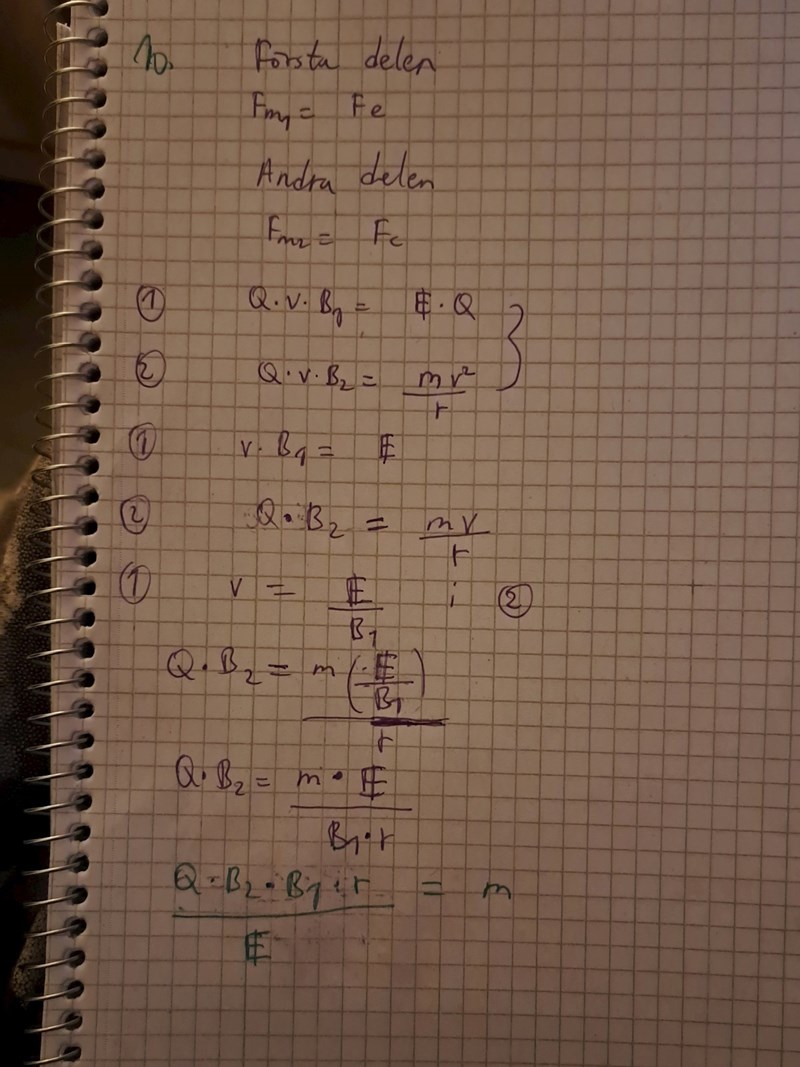 10. Första delen
Fm₁ = Fe
Andra delen
Fm₂ = Fc
① Q·v·B₁ = E·Q
② Q·v·B₂ = mv²/r
① v·B₁ = E
② Q·B₂ = mv/r
① v = E/B₁ i ②
Q·B₂ = m(E/B₁)/r
Q·B₂ = m·E/B₁·r
Q·B₂·B₁·r/E = m